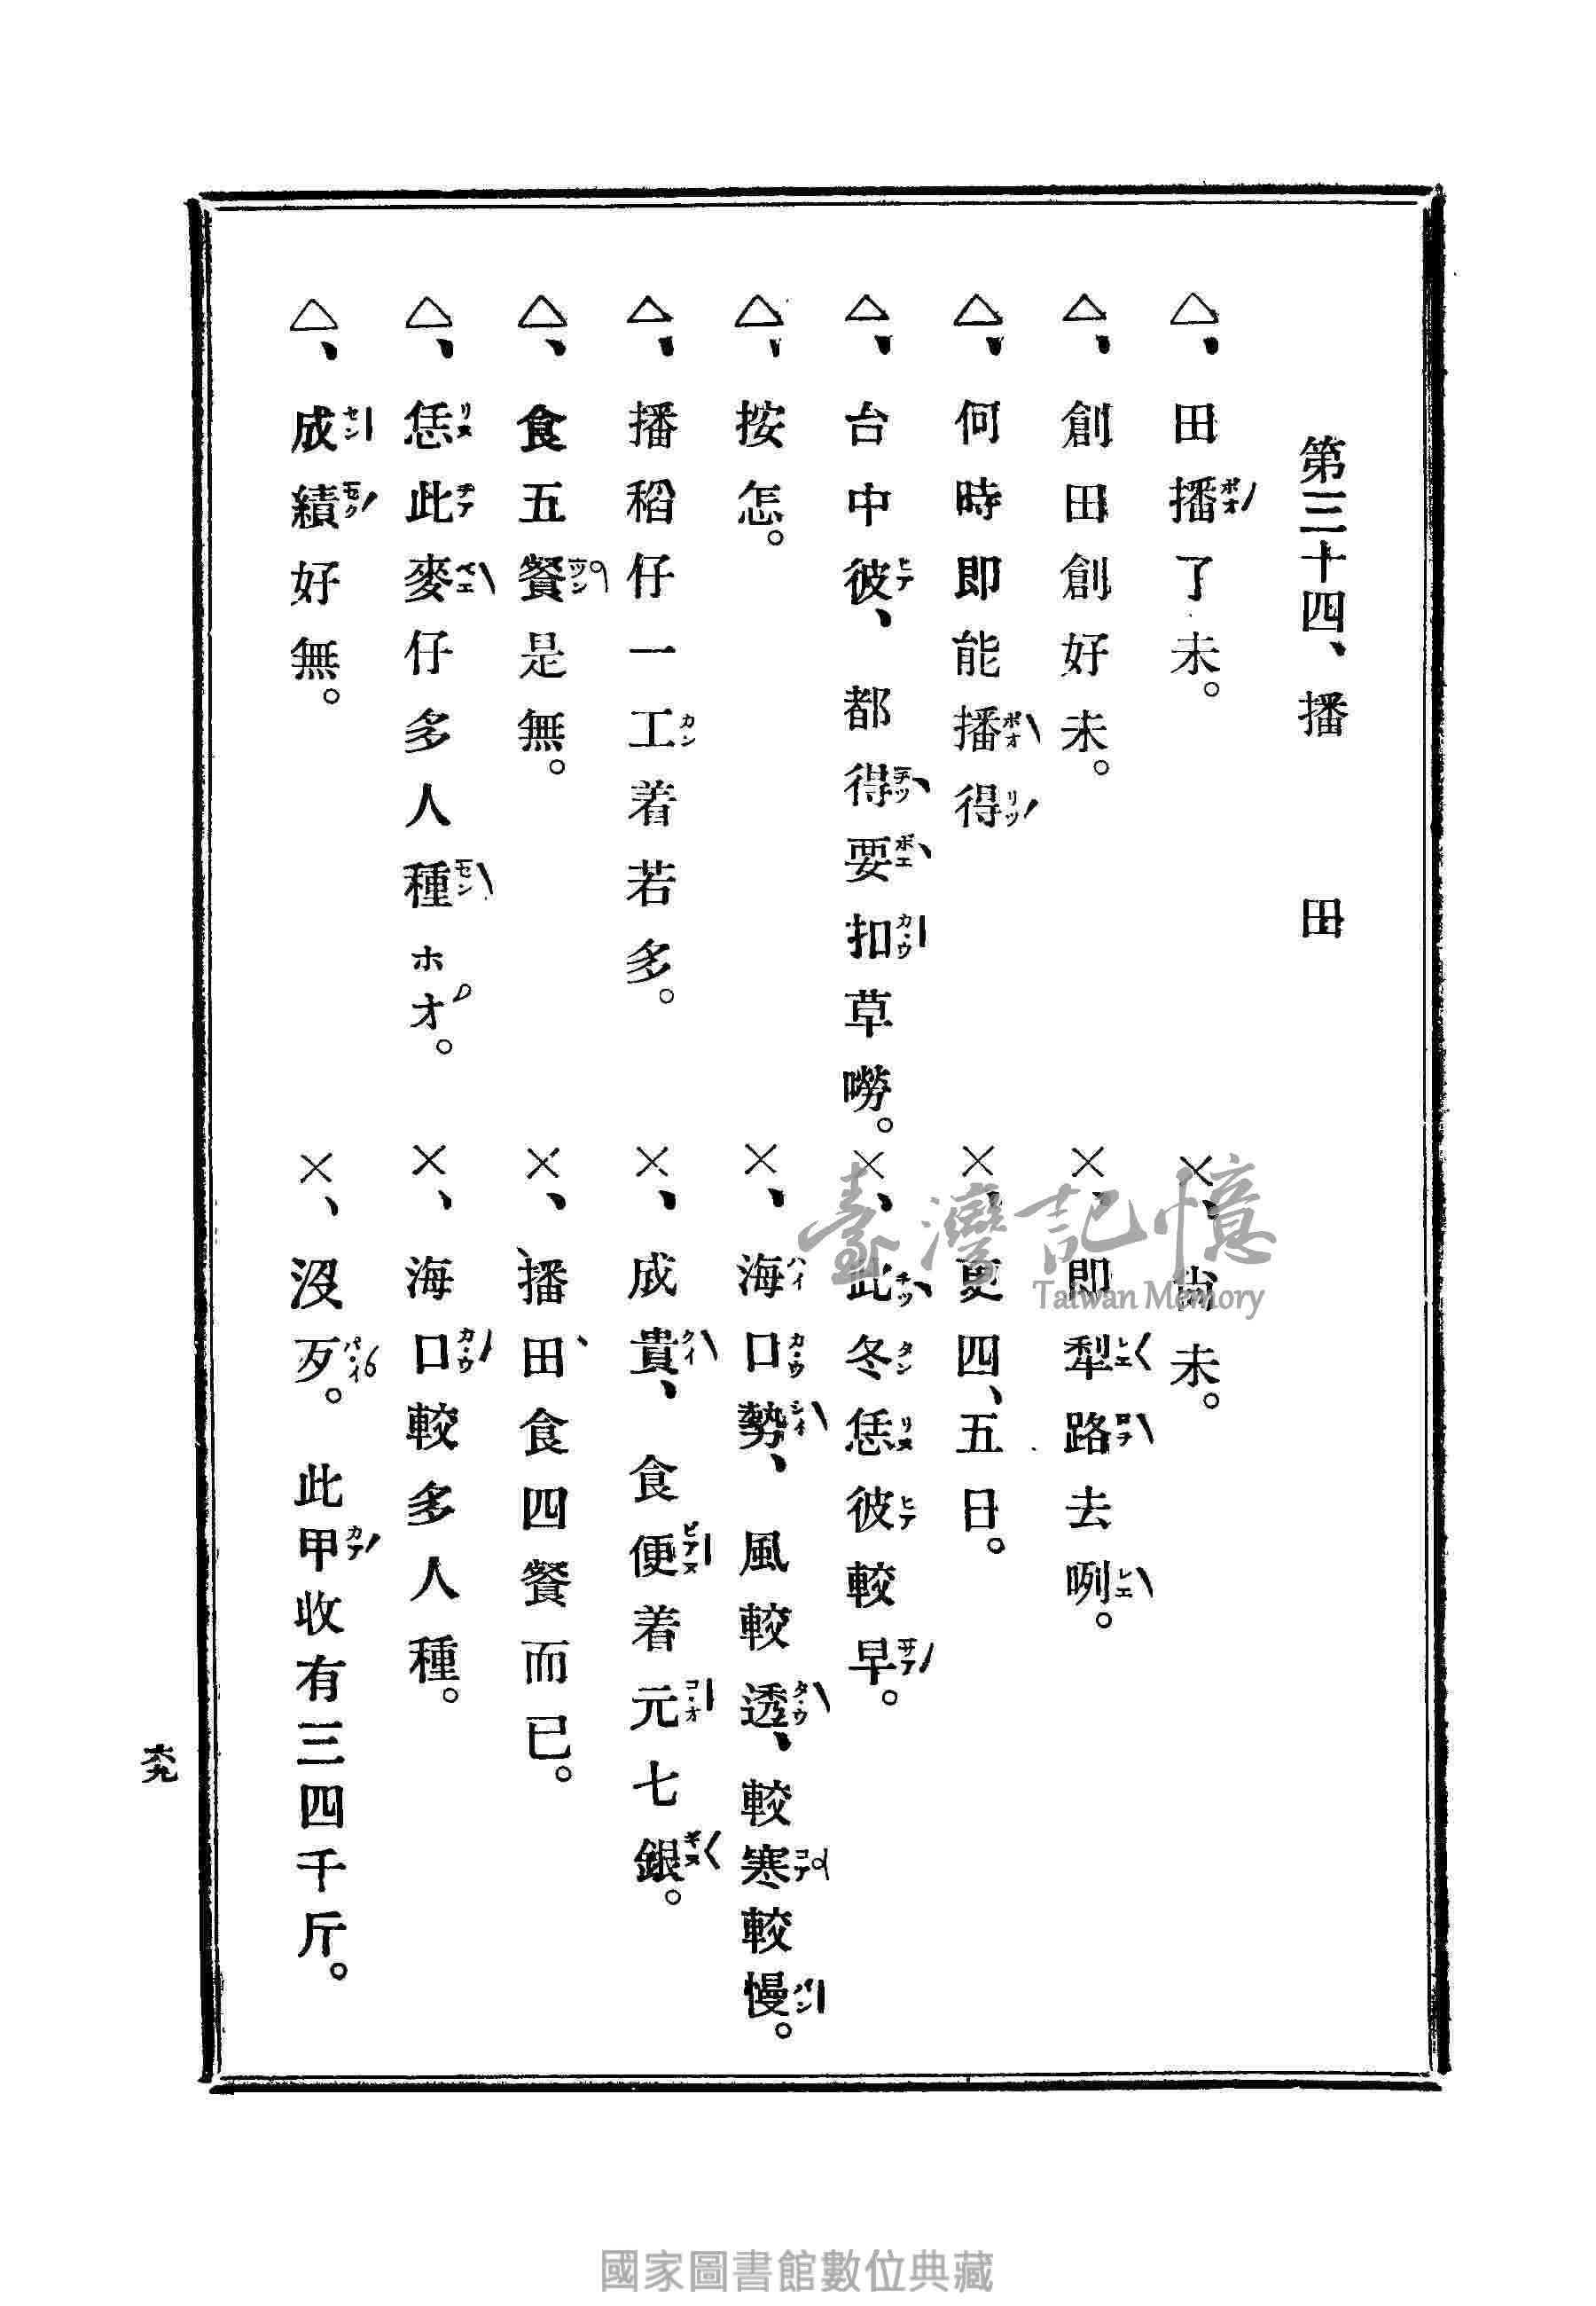 第三十四、播田
△、田播了未。
×、尚未。
△、創田創好未。
×、即犁路去咧。
△、何時即能播得
×、更四、五日。
△、台中彼、都得要扣草嘮。
×、此冬恁彼較早。
△、按怎。
×、海口勢、風較透、較寒較慢。
△、播稻仔一工着若多。
×、成貴、食便着元七銀。
△、食五餐是無。
×、播田食四餐而已。
△、恁此麥仔多人種ホオ。
×、海口較多人種。
△、成績好無。
×、沒歹。此甲收有三四千斤。
六九
臺灣記憶
Taiwan Memory
國家圖書館數位典藏